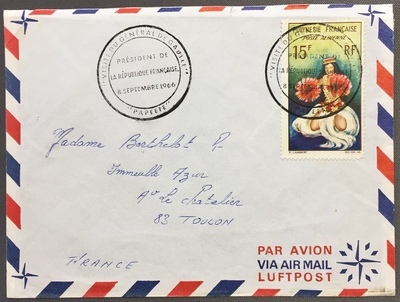 "VISITE DU GÉNÉRAL DE GAULLE"
PRÉSIDENT DE
LA RÉPUBLIQUE FRANÇAISE
8 SEPTEMBRE 1966
"PAPEETE"
POLYNÉSIE FRANÇAISE
POSTE AÉRIENNE
15F RF
Madame Berthelot P.
Immeuble Azur
Ave Le Chatelier
83 TOULON
FRANCE
PAR AVION
VIA AIR MAIL
LUFTPOST